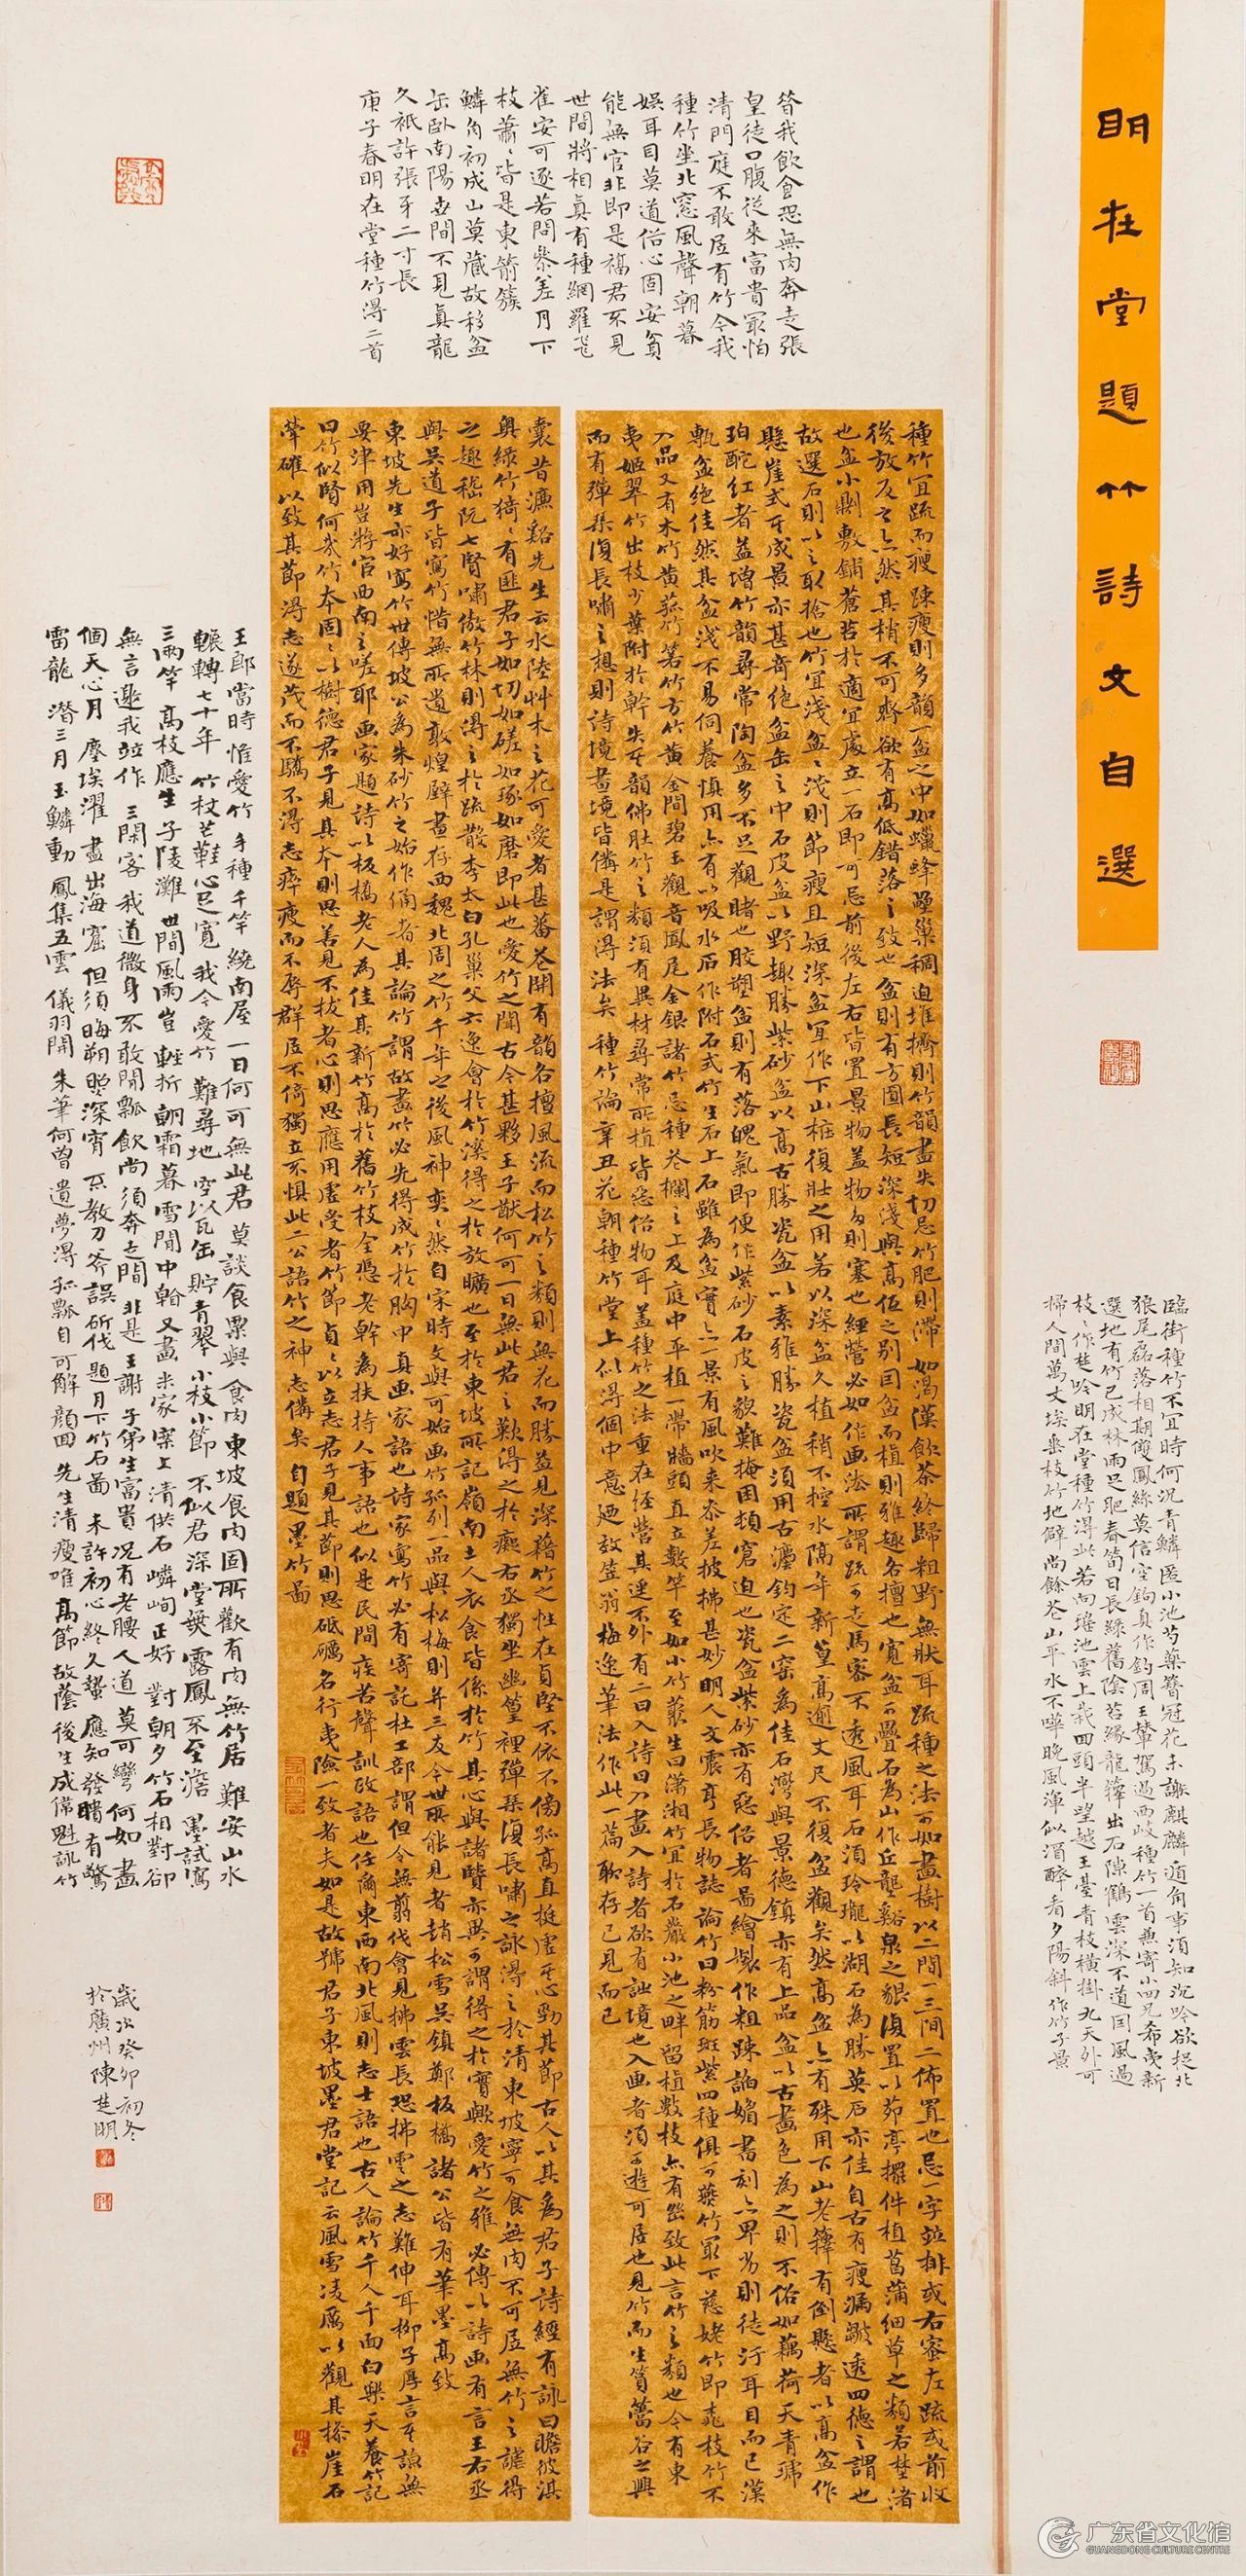 明在堂題竹詩文自選
臨街種竹不宜時何況青鱗匿小池芍藥簪冠花未謝麒麟遁角事須知沉吟欲捉北
狼尾磊落相期雙鳳絲莫信空鉤真作釣周王輦駕過西岐種竹一首兼寄小四兄希堯新
選地有竹已成林雨足肥春筍日長綠舊陰苔緣龍籜出石陳鶴雲深不道因風過
枝〻作楚吟明在堂種竹得此若向瑤池雲上栽四頭半望越王臺青枝橫掛九天外可
掃人間萬丈埃垂枝竹地僻尚餘蒼山平水不嘩晚風渾似酒醉看夕陽斜作竹子景
昔我飲食恐無肉奔走張
皇徒口腹從來富貴最怕
清門庭不敢居有竹令我
種竹坐北窓風聲朝暮
娛耳目莫道俗心固安貧
能無官非即是福君不見
世間將相真有種網羅飛
雀安可逐若問參差月下
枝蕭〻皆是東箭簇
鱗角初成山莫藏故移盆
缶臥南陽世間不見真龍
久祇許張牙二寸長
庚子春明在堂種竹得二首
種竹宜疏而瘦疎瘦則多韻一盆之中如蠟蜂壘巢稠迫堆擠則竹韻盡失切忌竹肥則滯如渴漢飲茶終歸粗野無狀耳疏種之法可如畫樹以二間一三間二佈置也忌一字竝排或右密左疏或前收
後放反之亦然其梢不可齊欲有高低錯落之致也盆則有方圓長短深淺與高伍之別因盆而植則雅趣各擅也寬盆可疊石為山作丘壑谿泉之貌復置以茆亭擺件植菖蒲細草之類若埜渚
也盆小則敷鋪蒼苔於適宜處立一石即可忌前後左右皆置景物蓋物多則塞也經營必如作画法所謂疏可走馬密不透風耳石須玲瓏以湖石為勝英石亦佳自古有瘦漏皺透四德之謂也
故選石則以之取捨也竹宜淺盆〻淺則節瘦且短深盆宜作下山樁復壯之用若以深盆久植稍不控水隔年新篁高逾丈尺不復盆觀矣然高盆亦有殊用下山老籜有倒懸者以高盆作
懸崖式其成景亦甚奇絕盆缶之中石皮盆以野趣勝紫砂盆以高古勝瓷盆以素雅勝瓷盆須用古瀘鈞定二窯為佳石灣與景德鎮亦有上品盆以古畫色為之則不俗如藕荷天青琺
珀酡紅者益增竹韻尋常陶盆多不足觀睹也胶塑盆則有落魄氣即便作紫砂石皮之貌難掩困頓窘迫也瓷盆紫砂亦有惡俗者畐繪製作粗疎諂媚書刻亦卑劣則徒汙耳目而已漢
甎盆絕佳然其盆淺不易伺養慎用亦有以吸水石作附石式竹生石上石雖為盆實亦一景有風吹來參差披拂甚妙明人文震亨長物誌論竹曰粉筋斑紫四種俱可燕竹最下慈姥竹即桃枝竹不
入品又有木竹黃菰竹箬竹方竹黃金間碧玉觀音鳳尾金銀諸竹忌種花欄之上及庭中平植一帶牆頭直立數竿至如小竹叢生曰瀟湘竹宜於石巖小池之畔留植數枝亦有幽致此言竹之類也今有東
夷姬翠竹出枝少葉附於幹失其韻佛肚竹之類須有異材尋常所植皆惡俗物耳蓋種竹之法重在經營其運不外有二曰入詩曰入畫入詩者欲有詘境也入画者須可遊可居也見竹而生篔簹谷之興
而有彈琹復長嘯之想則詩境畫境皆僯是謂得法矣種竹論辛丑花朝種竹堂上似得個中意廼放笠翁梅逸筆法作此一篇聊存己見而已
曩昔濂谿先生云水陸艸木之花可愛者甚蕃花開有韻各擅風流而松竹之類則無花而勝益見深藉竹之性在貞堅不依不傍孤高直挺虛其心勁其節古人以其為君子詩經有詠曰瞻彼淇
奧綠竹猗〻有匪君子如切如磋如琢如磨即此也愛竹之聞古今甚夥王子猷何可一日無此君之歎得之於癡右丞獨坐幽篁裡彈琹復長嘯之詠得之於清東坡寧可食無肉不可居無竹之謔得
之趣嵇阮七賢嘯傲竹林則得之於疏散李太白孔巢父六逸會於竹溪得之於放曠也至於東坡所記嶺南土人衣食皆係於竹其心與諸賢亦異可謂得之於實歟愛竹之雅必傳以詩画有言王右丞
與吳道子皆寫竹惜無所遺敦煌壁畫存西魏北周之竹千年之後風神奕〻然自宋時文與可始画竹孤列一品與松梅則并三友今世所能見者趙松雪吳鎮鄭板橋諸公皆有筆墨高致
東坡先生亦好寫竹世傳坡公為朱砂竹之始作俑者其論竹謂故畫竹必先得成竹於胸中真画家語也詩家寫竹必有寄記杜工部謂但令無翦伐會見拂雲長恐拂雲之志難伸耳柳子厚言其諒無
要津用豈將官西南之嗟耶画家題詩以板橋老人為佳其新竹高於舊竹枝全憑老幹為扶持人事語也似是民間疾苦聲訓政語也任爾東西南北風則志士語也古人論竹千人千面白樂天養竹記
曰竹似賢何哉竹本固〻以樹德君子見其本則思善見不拔者心則思應用虛受者竹節貞〻以立志君子見其節則思砥礪名行夷險一致者夫如是故號君子東坡墨君堂記云風雪凌厲以觀其操崖石
犖确以致其節得志遂茂而不驕不得志瘁瘦而不辱群居不倚獨立不懼此二公語竹之神志僯矣 自題墨竹畐
王郎當時惟愛竹 手種千竿繞南屋一日何可無此君莫談食粟與食肉東坡食肉固所歡有肉無竹居難安山水
輾轉七十年 竹杖芒鞋心足寬我今愛竹難尋地空以瓦缶貯青翠小枝小節不似君深堂無露鳳不至澹墨試寫
三兩竿高枝應生子陵灘世間風雨豈輕折朝霜暮雪閒中翰又畫米家案上清供石嶙峋正好對朝夕竹石相對卻
無言邀我竝作三閑客我道微身不敢閒瓢飲尚須奔走間非是王謝子弟生富貴況有老腰人道莫可彎何如畫
個天心月塵埃濯盡出海窟但須晦朔照深宵不教刀斧誤斫伐題月下竹石畐未許初心終久蟄應知發聵有驚
雷龍潛三月玉鱗動鳳集五雲儀羽開朱筆何曾遺夢得孤瓢自可解顏回先生清瘦唯高節故蔭後生成偉魁詠竹
歲次癸卯初冬
於廣州陳楚明
广东省文化馆
GUANGDONG CULTURE CENTRE